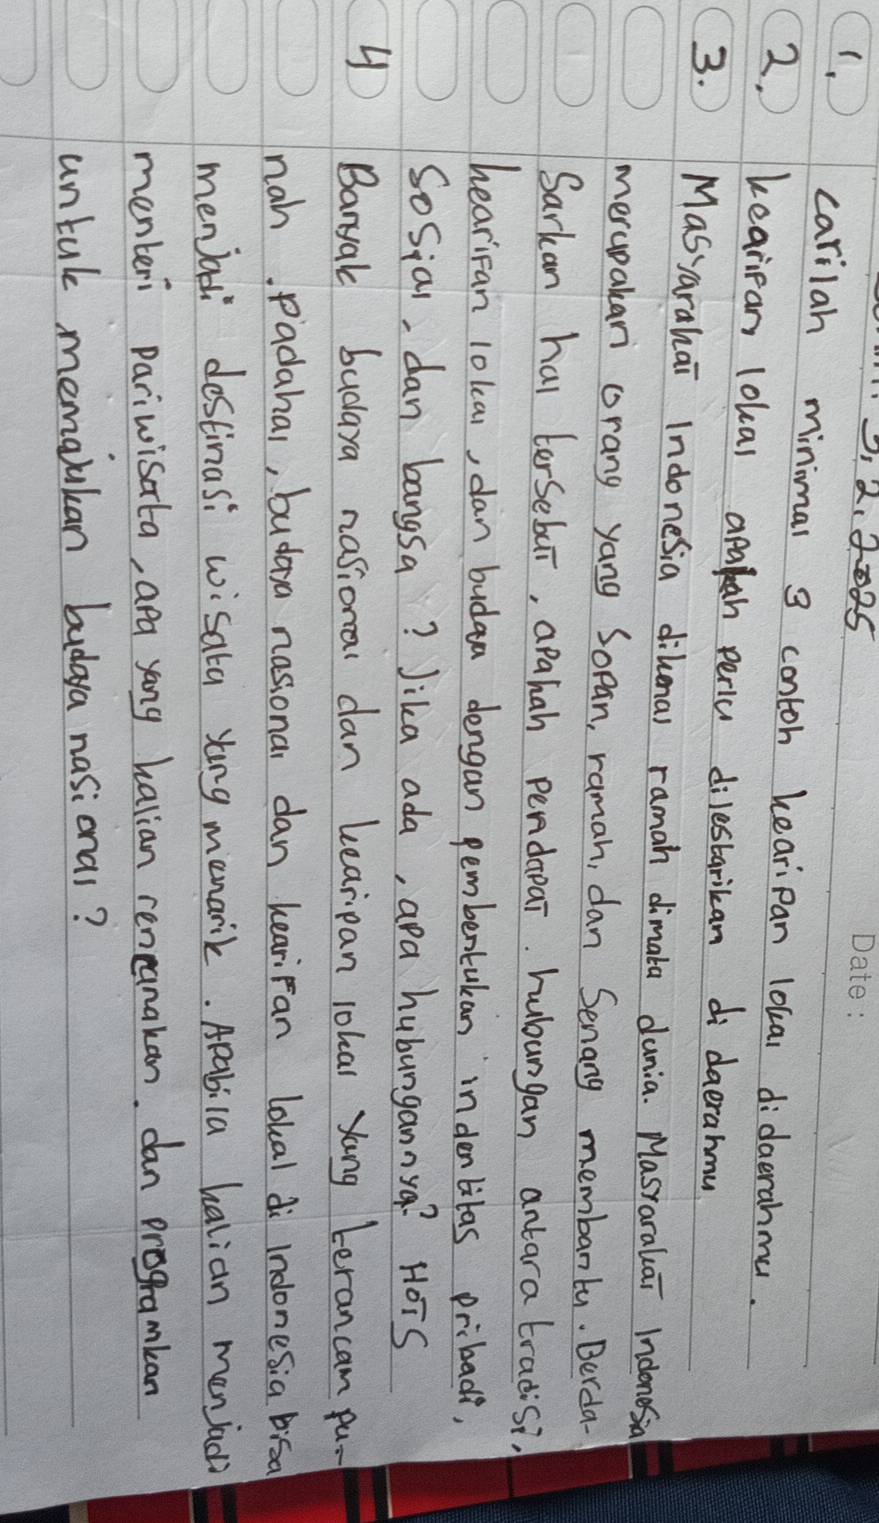 3, 2. 2025
Date :
1. carilah minimal 3 contoh kearipan lokal didaerahmu.
2. kearipan lokal apakah perlu dilestarikan di daerahmu
3. Masyarakat Indonesia dikenal ramah dimata dunia. Masyarakat Indonesia
merupakan orang yang sopan, ramah, dan senang membantu. Berda-
sarkan hal tersebut, apakah pendapat hubungan antara tradisi,
kearifan lokal, dan budaya dengan pembentukan indentitas pribadi,
sosial, dan bangsa ? Jika ada, apa hubungannya? HOTS
4 Banyak budaya nasional dan kearipan lokal yang terancam pu-
nah. Padahal, budaya nasional dan kearifan lokal di Indonesia bisa
menjadi destinasi wisata yang menarik. Apabila kalian menjadi
menteri pariwisata, apa yang kalian rencanakan. dan programkan
untuk memajukan budaya nasional ?